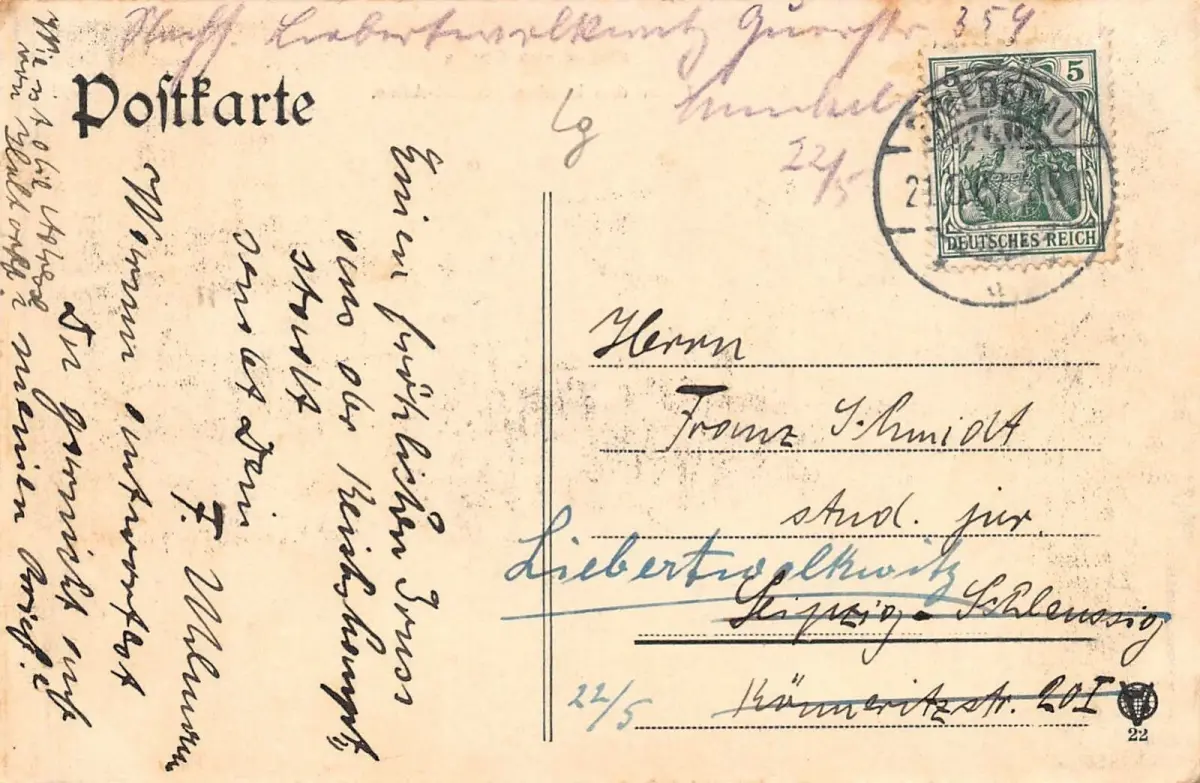 Liebertwolkwitz Querstr. 354
22/5
Postkarte
5 5
DEUTSCHES REICH
Einen fröhlichen Gruss
aus der Reichshaupt-
stadt
sendet Dein
F.
Warum antwortest
Du garnicht auf
meinen Brief?
Herrn
Franz Schmidt
stud. jur.
Liebertwolkwitz
Leipzig-Schleussig
Könneritzstr. 20 I
22/5
22